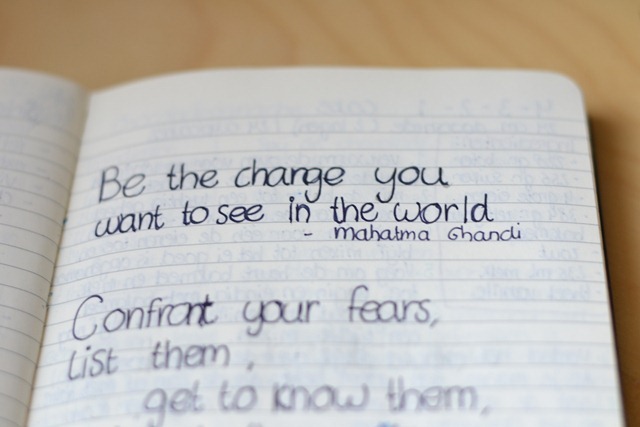 Be the change you
want to see in the world
- Mahatma Ghandi
Confront your fears,
List them,
get to know them,